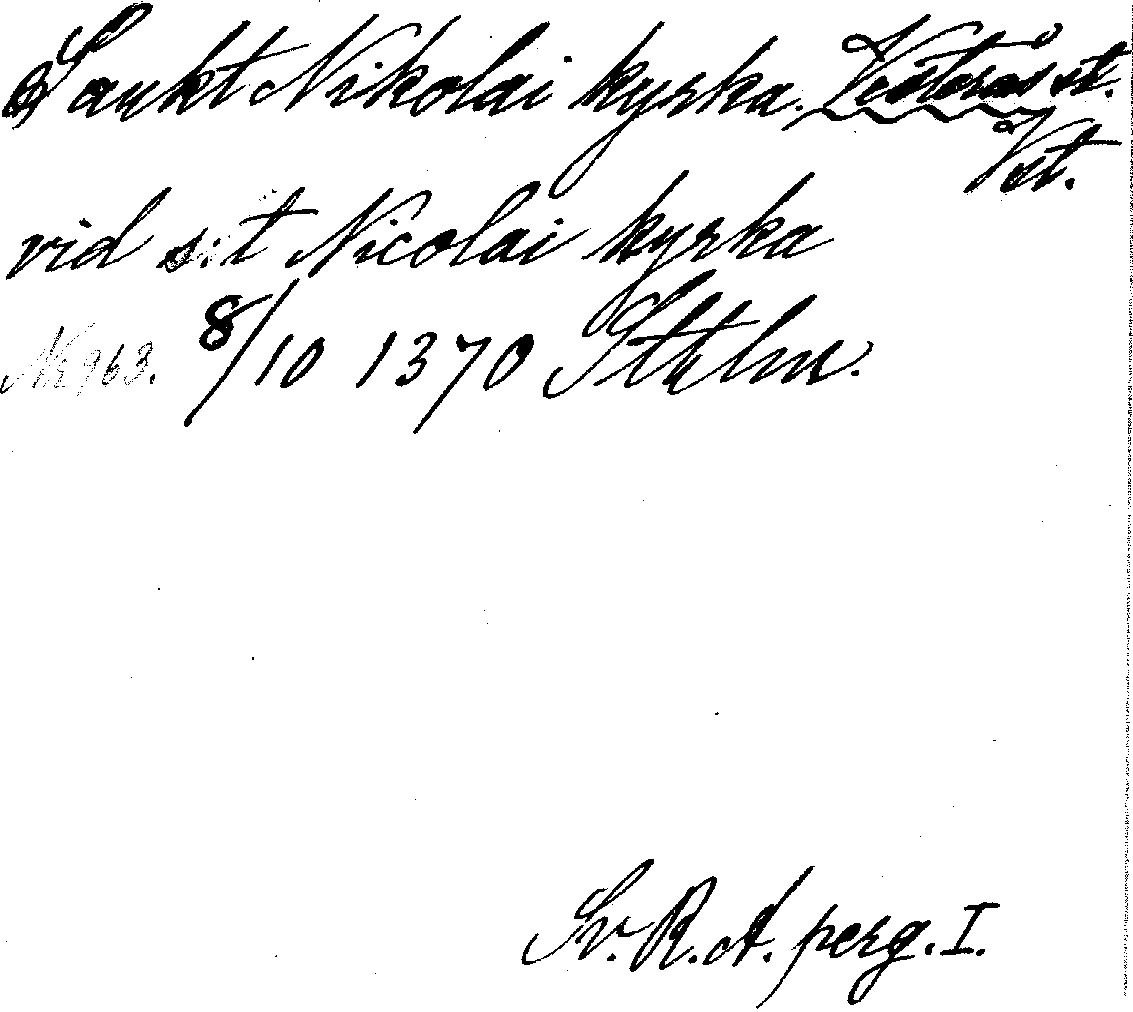 Sankt Nikolai kyrka. Vesterås st.
Vst.
vid s:t Nicolai kyrka
Nr 963. 8/10 1370 Sthlm.
Sv. R. A. perg. I.